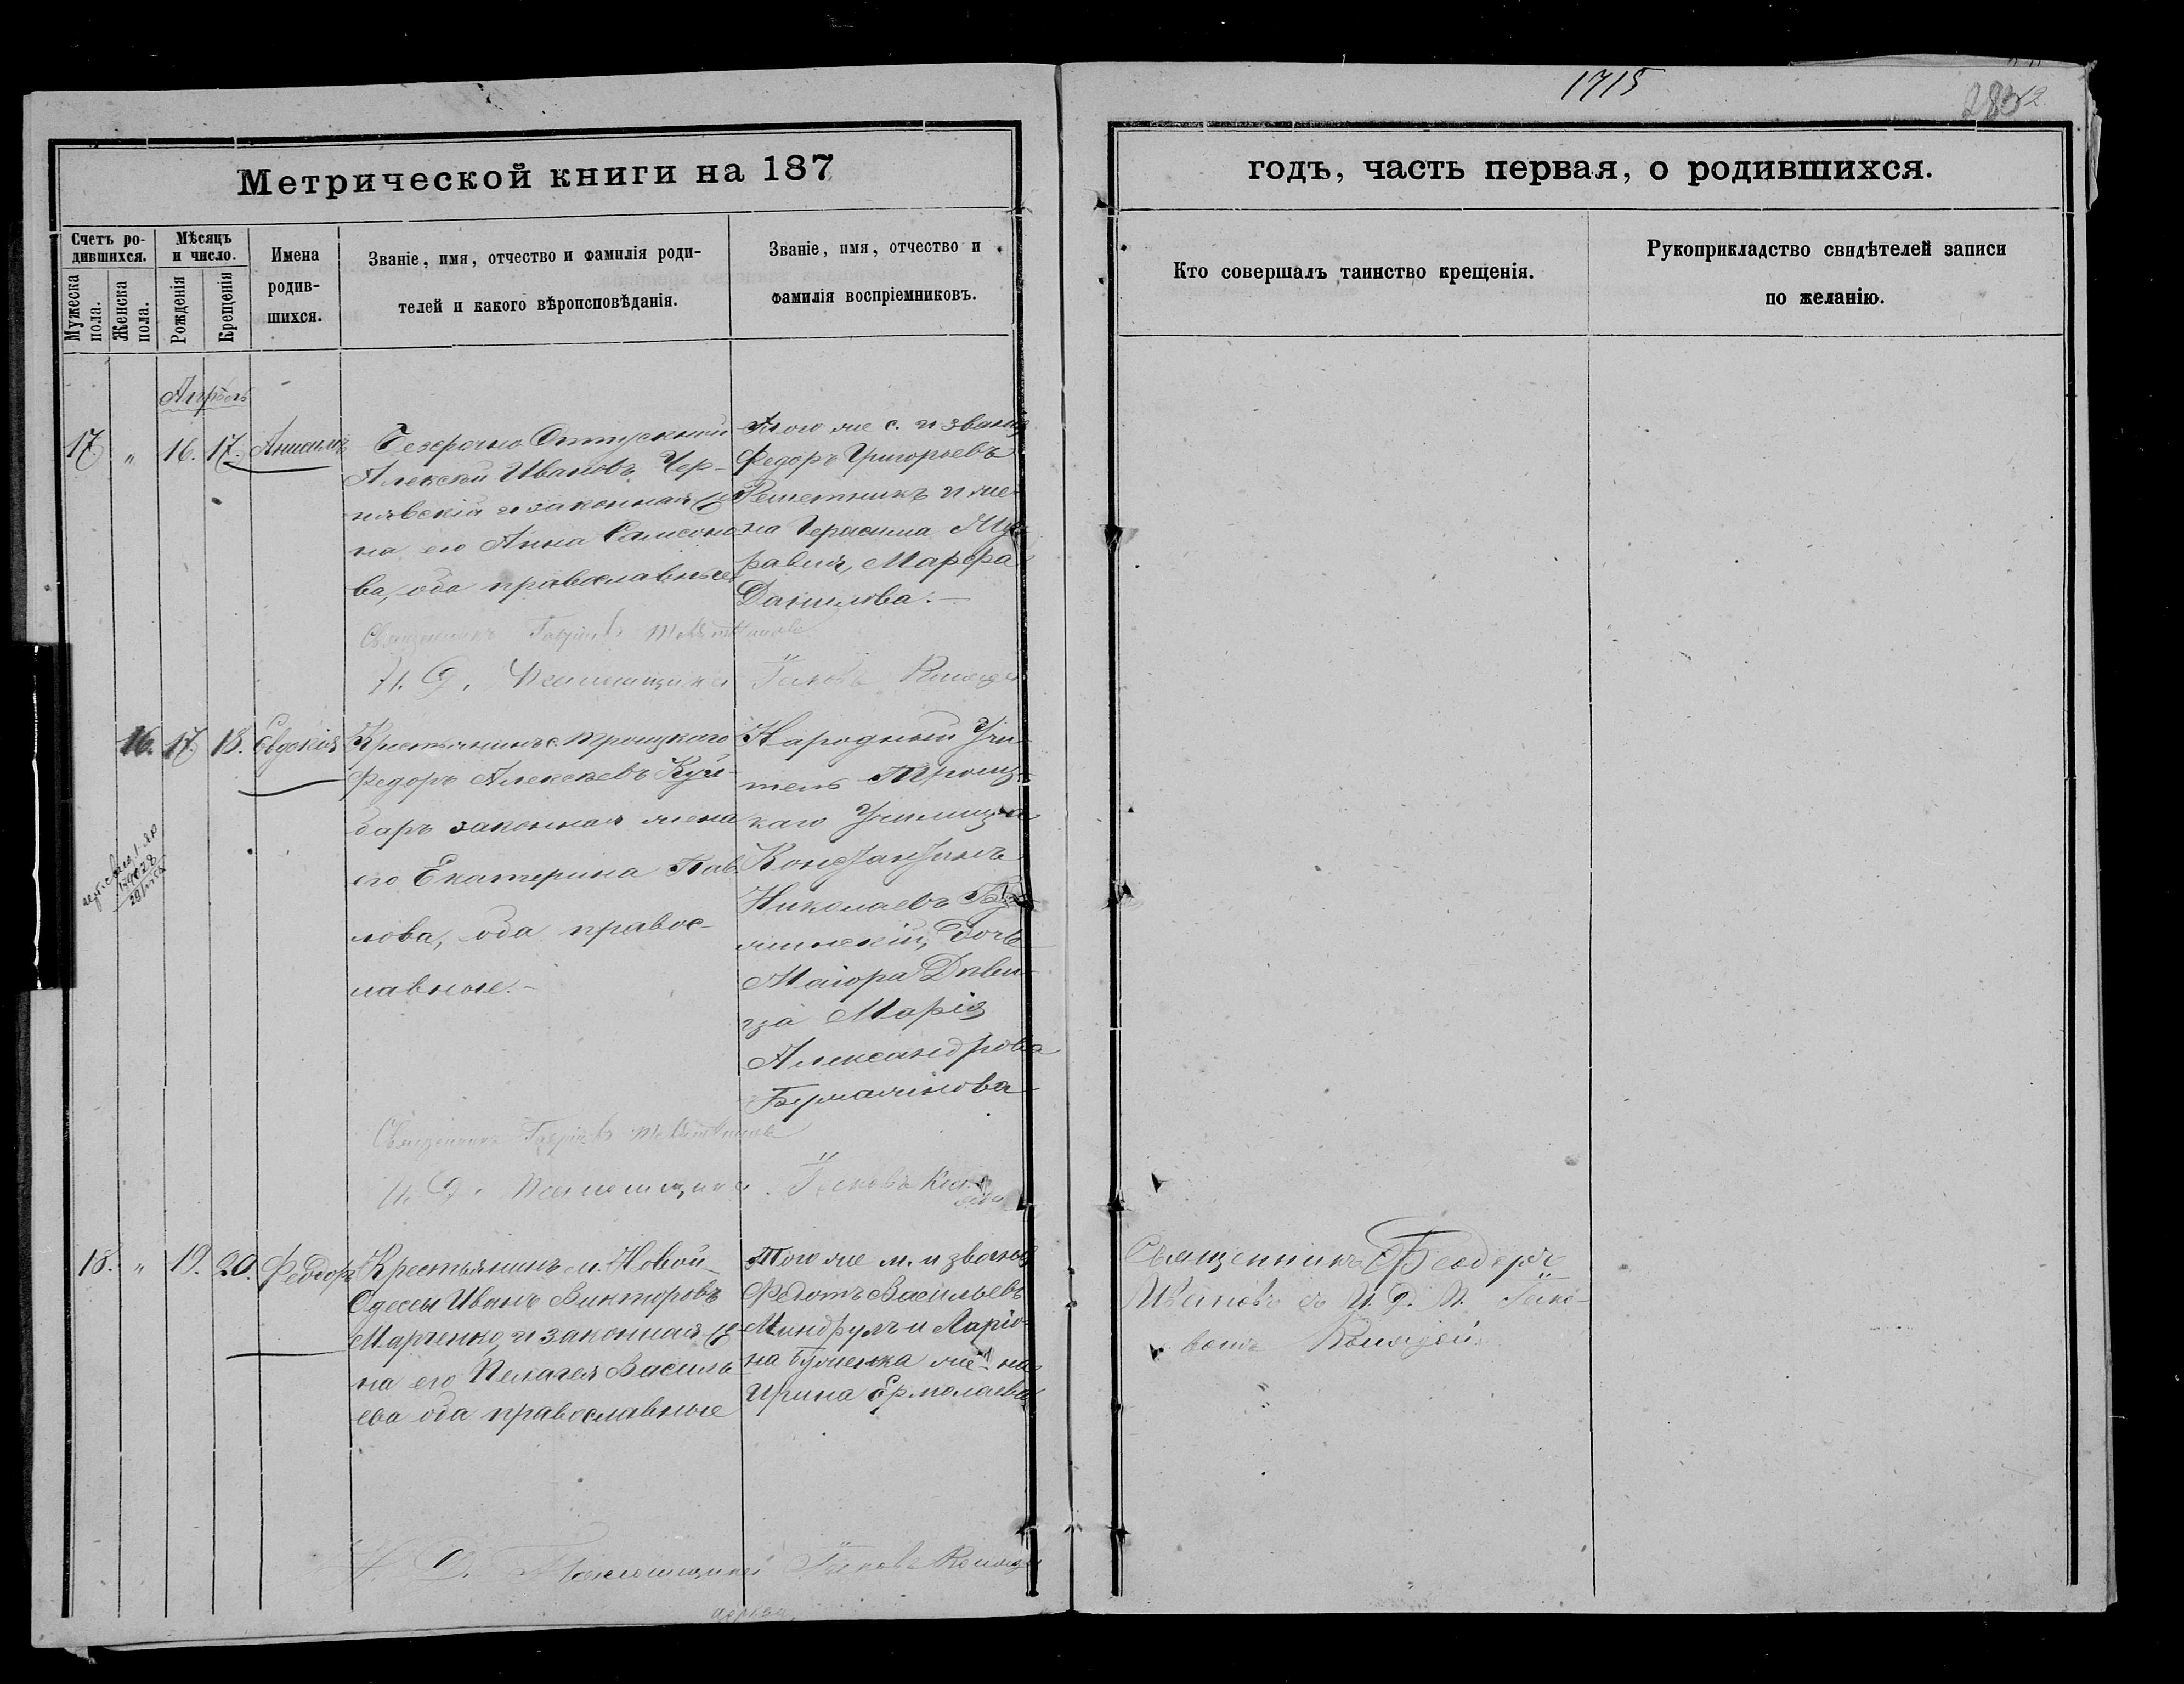 1715
283 12.
Метрической книги на 187
годъ, часть первая, о родившихся.
Счетъ ро-
дившихся.
Мужеска
пола.
Женска
пола.
Мѣсяцъ
и число.
Рожденія
Крещенія
Имена
родив-
шихся.
Званіе, имя, отчество и фамилія роди-
телей и какого вѣроисповѣданія.
Званіе, имя, отчество и
фамилія воспріемниковъ.
Кто совершалъ таинство крещенія.
Рукоприкладство свидѣтелей записи
по желанію.
Апрѣль
17. „ 16. 17. Анисимъ
Безсрочно Отпускной
Алексѣй Ивановъ Чер-
нявскій и законная же-
на его Анна Самсоно-
ва, оба православные
Того же с. и званія
Федоръ Григорьевъ
Решетникъ и же-
на Герасима
Марфа
Данилова.
Священникъ Гавріилъ
И. Д. Псаломщика Іаковъ
16. 17. 18. Евдокія
Крестьянинъ с. Троицкаго
Федоръ Алексѣевъ Куй-
баръ законная жена
его Екатерина Пав-
лова, оба правос-
лавные.
Народный Учи-
тель Троиц-
каго Училища
Константинъ
Николаевъ
дочь
Маіора
Марія
Александрова
Священникъ Гавріилъ
И. Д. Псаломщика Іаковъ
18. „ 19. 20. Феодоръ
Крестьянинъ м. Новой
Одессы Иванъ Викторовъ
Марченко, и законная же-
на его Пелагея Василь-
ева оба православные
Того же м. и званія
Федотъ Васильевъ
Миндрулъ и Ларіо-
на жена
Ирина Ермолаева
Священникъ Феодоръ
Ивановъ съ И. Д. П. Іако-
вомъ
И. Д. Псаломщика Іаковъ